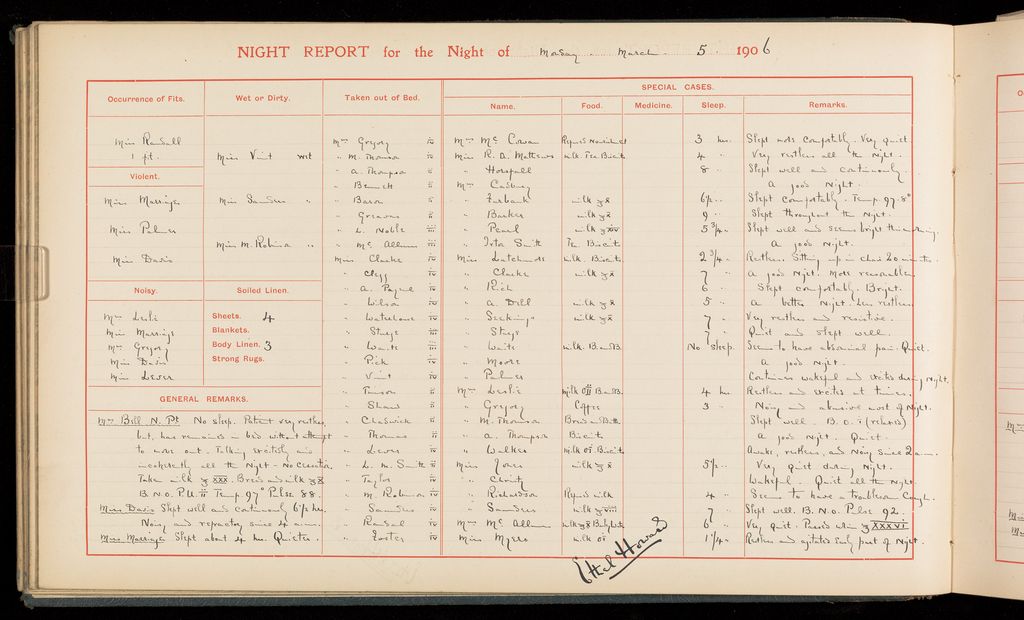 NIGHT REPORT for the Night of Monday March 5 1906
Occurrence of Fits.
Miss Randall
1 fit.
Violent.
Miss Marriage
Miss Palmer
Miss Davis
Noisy.
Mrs Leslie
Miss Marriage
Mrs Gregory
Miss Davis
Miss Lever
Wet or Dirty.
Miss Vint wet
Miss Saunders "
Miss M. Robinson "
Soiled Linen.
Sheets. 4
Blankets.
Body Linen. 3
Strong Rugs.
GENERAL REMARKS.
Mrs Bill N. Pt. No sleep. Patient very restless
but has remained in bed without attempt
to move out. Talking excitedly and
incoherently all the Night - No cessation.
Taken milk ℥ XXX. Bread and milk ℥ X
B.N.O. P.U. ii Temp. 97° Pulse 88.
Miss Davis Slept well and continuously 6½ hrs.
Noisy and refractory since 4 a.m.
Miss Marriage Slept about 4 hrs. Quieter.
Taken out of Bed.
Mrs Gregory
" M. Thomson
" A. Thompson
" Bennett
" Baron
" Greaves
" L. Noble
" Mc Allum
Miss Clarke
" Clegg
" A. Payne
" Wilson
" Waterhouse
" Stays
" Waite
" Pick
" Vint
" Shaw
" Chadwick
" Thomas
" Lever
" L. M. Smith
" Taylor
" M. Robinson
" Saunders
" Randal
" Foster
SPECIAL CASES.
Name. Food. Medicine. Sleep. Remarks.
Mrs Mc Cowan Refused Nourishment 3 hrs. Slept more comfortably. Very quiet.
Miss R. A. Mathews milk Tea Biscuits 4 " Very restless all the Night.
" Horsfall 8 " Slept well and continuously.
Mrs Cadbury A good Night.
" Furbank milk ℥ X 6½ " Slept comfortably. Temp. 97.8°
" Barker milk ℥ X 9 " Slept throughout the Night.
" Pearl milk ℥ XIV 5¾ " Slept well and seems bright this morning.
" Iota Smith Tea Biscuits A good Night.
Miss Latchmore milk. Biscuits 2¾ " Restless. Sitting up in chair 20 minutes.
" Clarke milk ℥ X 7 " A good Night. More reasonable.
" Rich 6 " Slept comfortably. Bright.
" A. Dill milk ℥ X 5 " A better Night. Less restless.
" Seekings milk ℥ X 7 " Very restless and resistive.
" Stays 7 " Quiet and slept well.
" Waite milk. B. and B. No sleep. Seems to have abdominal pain. Quiet.
" Moore A good Night
" Palmer Continues wakeful and excited during Night.
Mrs Leslie milk B. and B. 4 hrs Restless and excited at times.
" Gregory Coffee 3 " Noisy and abusive most of Night.
" M. Thomson Bread and Butter Slept well. B.O. i (relaxed)
" A. Thompson Biscuits A good Night. Quiet.
" Walker milk Biscuits Awake, restless, and Noisy Since 2 a.m.
Miss Jones milk ℥ X 5½ " Very quiet during Night.
" Christy Wakeful. Quiet all the Night.
" Richardson Refused milk 4 " Seems to have a troublesome Cough.
" Saunders milk 7 " Slept well. B.N.O. Pulse 92.
Mrs Mc Allum milk ℥ X 6 " Very quiet. Passed urine ℥ XXXVI
Miss Myers milk 1¼ " Restless and agitated Early part of Night.
Ethel Howard